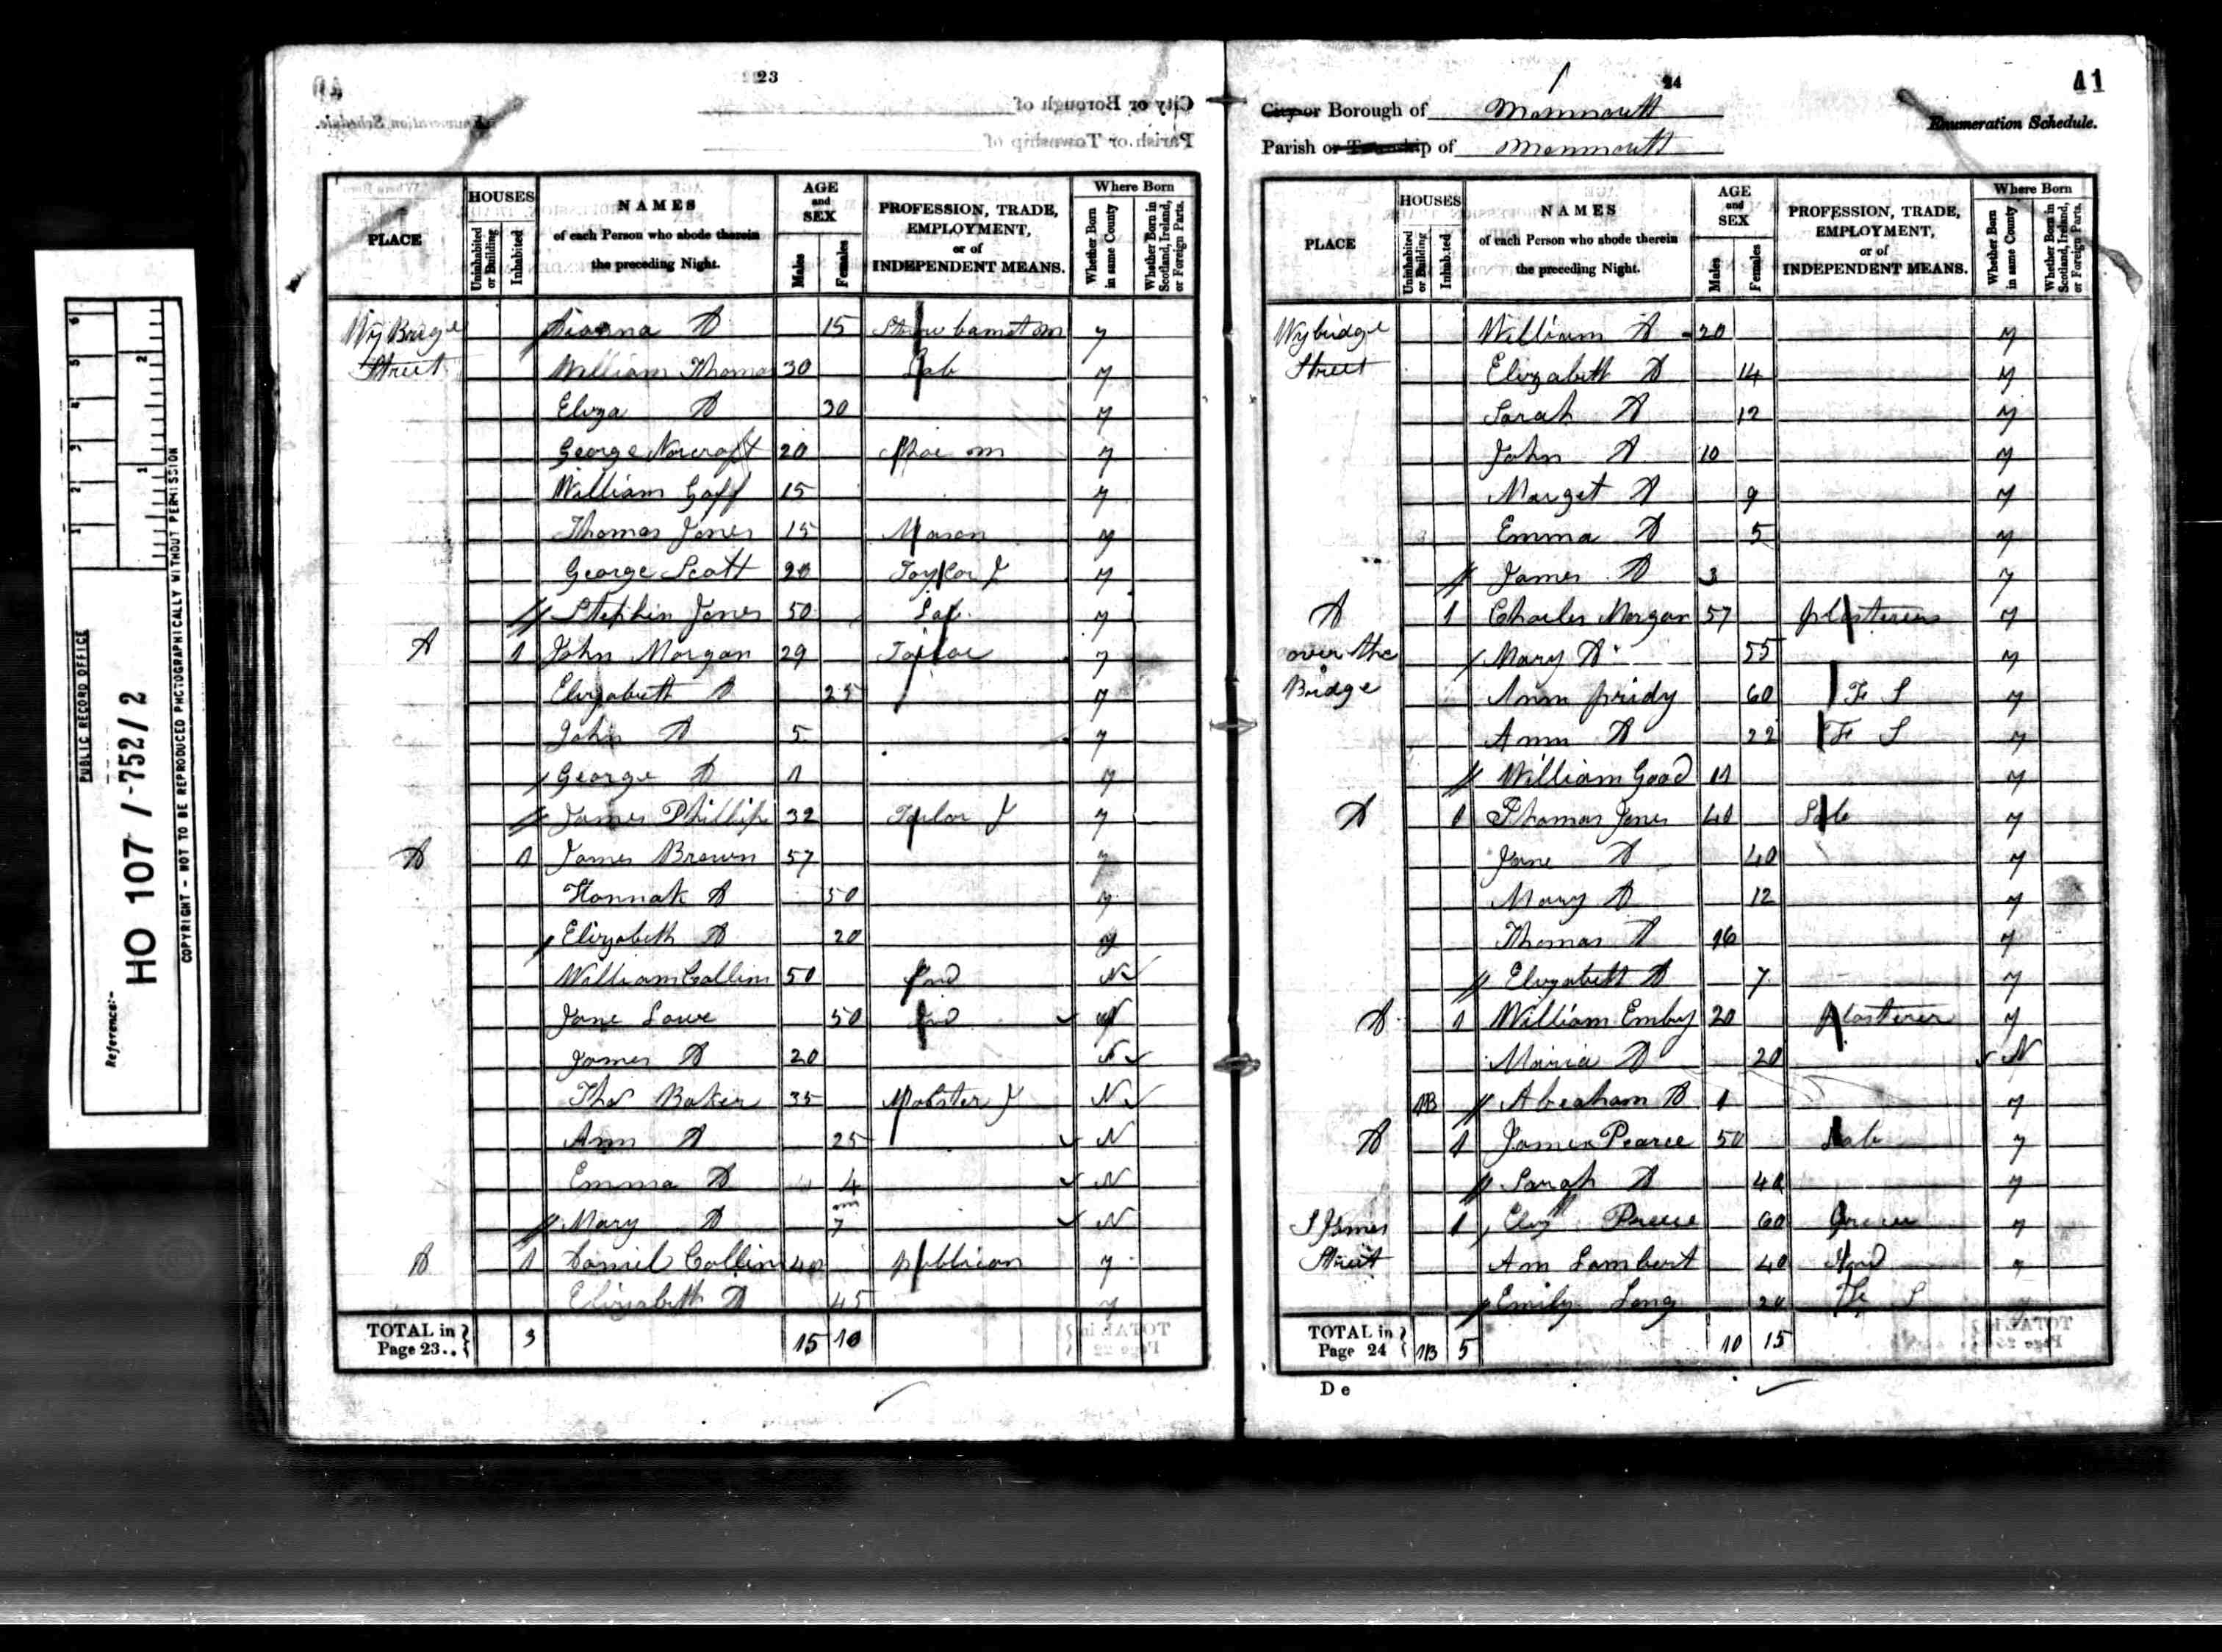 PUBLIC RECORD OFFICE
Reference:-
HO 107 / -752/2
COPYRIGHT - NOT TO BE REPRODUCED PHOTOGRAPHICALLY WITHOUT PERMISSION
23
PLACE
HOUSES
Uninhabited or Building
Inhabited
NAMES
of each Person who abode therein
the preceding Night.
AGE and SEX
Males
Females
PROFESSION, TRADE, EMPLOYMENT, or of INDEPENDENT MEANS.
Where Born
Whether Born in same County
Whether Born in Scotland, Ireland, or Foreign Parts.
Wy Bridge D 15 y
Street William Thomas 30 Lab y
Eliza D 30 y
George 20 Shoe m y
William Goff 15 y
Thomas Jones 15 Mason y
George Scott 20 Taylor J y
Stephen Jones 50 Lab. y
D 1 John Morgan 29 y
Elizabeth D 25 y
John D 5 y
George D 1 y
James Phillips 32 J y
D 1 James Brown 57 y
Hannah D 50 y
Elizabeth D 20 y
William Collins 50 Ind N
Jane Lowe 50 Ind N
James D 20 N
Thos Baker 35 J N
Ann D 25 N
Emma D 4 N
Mary D 7 m N
D 1 Daniel Collins 40 publican y
Elizabeth D 45 y
TOTAL in Page 23.. 3 15 10
24
41
City or Borough of Monmouth
Parish or Township of Monmouth
Enumeration Schedule.
PLACE
HOUSES
Uninhabited or Building
Inhabited
NAMES
of each Person who abode therein
the preceding Night.
AGE and SEX
Males
Females
PROFESSION, TRADE, EMPLOYMENT, or of INDEPENDENT MEANS.
Where Born
Whether Born in same County
Whether Born in Scotland, Ireland, or Foreign Parts.
Wybridge William D 20 y
Street Elizabeth D 14 y
Sarah D 12 y
John D 10 y
Marget D 9 y
Emma D 5 y
James D 3 y
D 1 Charles Morgan 57 y
over the Mary D 55 y
Bridge Ann pridy 60 Fe S y
Ann D 22 Fe S y
William Good 11 y
D 1 Thomas Jones 40 Lab y
Jane D 40 y
Mary D 12 y
Thomas D y
Elizabeth D 7 y
D 1 William Emby 20 plasterer y
Maria D 20 N
1B Abraham D 1 y
D 1 James Pearce 50 Lab y
Sarah D 40 y
S James 1 Eliz 60 y
Street Ann Lambert 40 Ind y
Emily Long 20 Fe S
TOTAL in Page 24 1B 5 10 15
D e